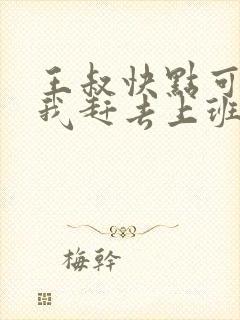 王叔快點可
我赶去上班
梅幹